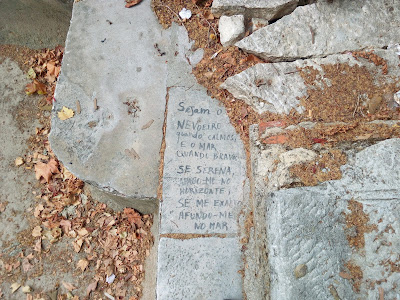 Sejam o
NEVOEIRO
quando CALMOS,
E O MAR
QUANDO BRAVOS
SE SERENA,
VAGO-ME NO
HORIZONTE;
SE ME EXALTO
AFUNDO-ME
NO MAR